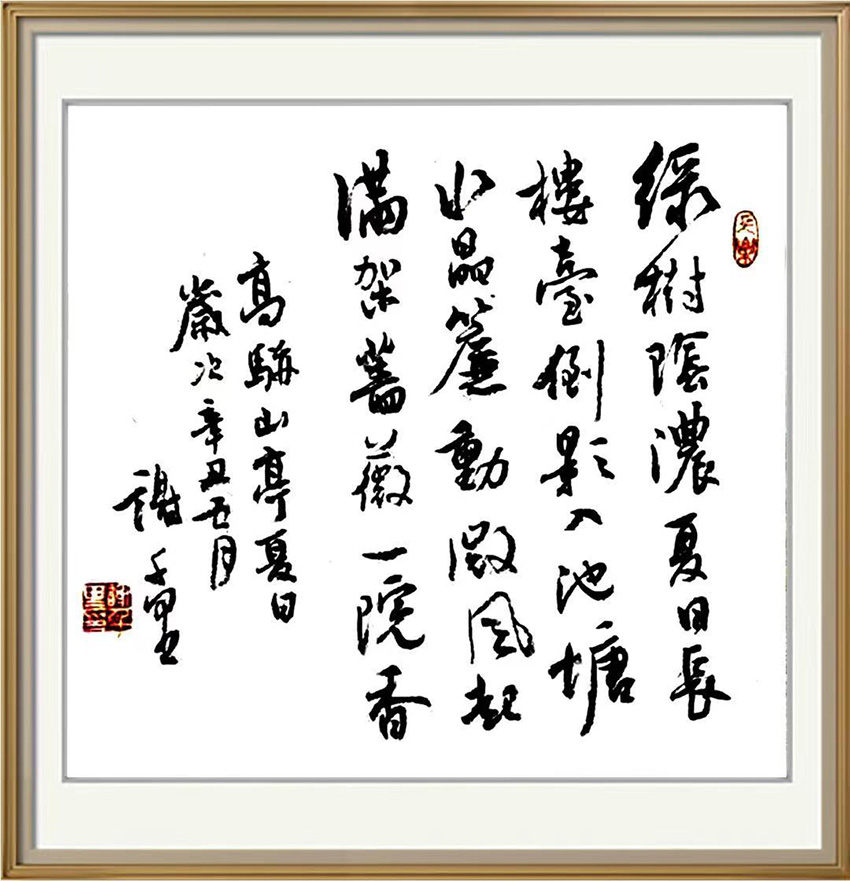 綠樹陰濃夏日長
樓臺倒影入池塘
水晶簾動微風起
滿架薔薇一院香
高駢山亭夏日
歲次辛丑五月
謝千里书